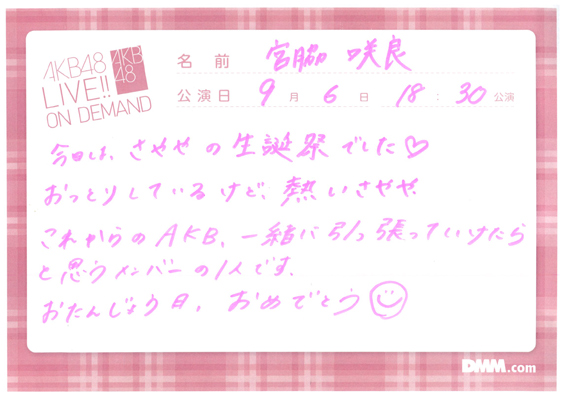 AKB48
LIVE!!
ON DEMAND
AKB
48
名前 宮脇 咲良
公演日 9月 6日 18:30公演
今日は、さややの生誕祭でした♡
おっとりしているけど、熱いさやや。
これからのAKB、一緒に引っ張っていけたら
と思うメンバーの1人です。
おたんじょう日、おめでとう☺
DMM.com